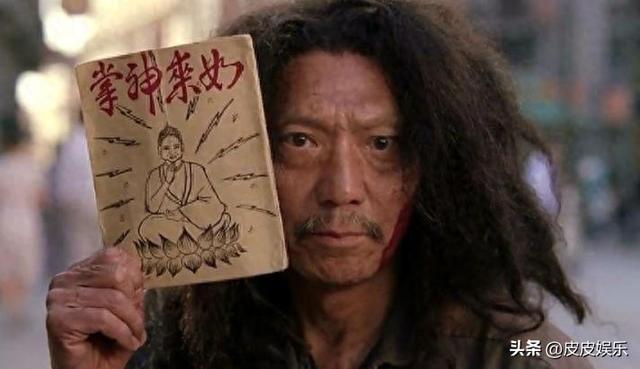 如來神掌
头条 @皮皮娱乐